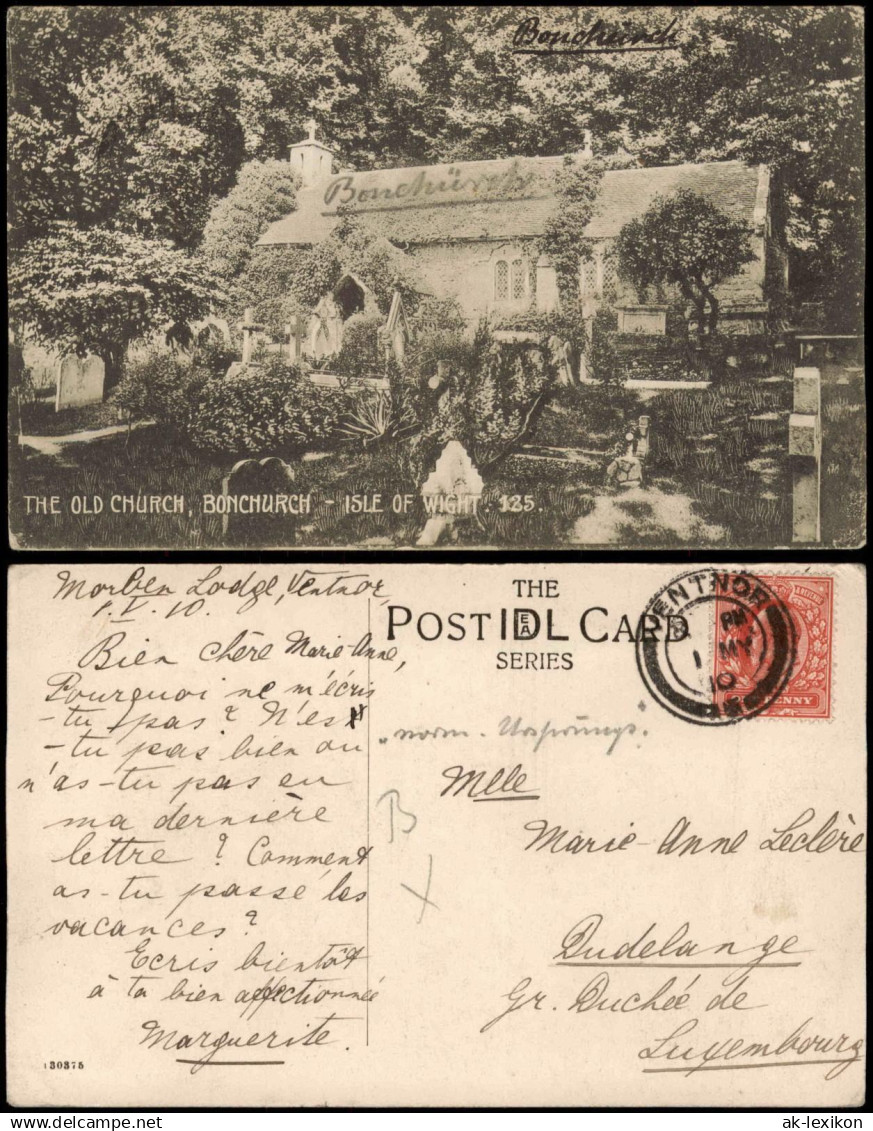 Bonchurch
Bonchürch
THE OLD CHURCH, BONCHURCH - ISLE OF WIGHT. 125.
Lodge, Ventnor,
1. V. 10.
Bien chère Marie-Anne,
Pourquoi ne m'écris
-tu pas? N'es
-tu pas bien ou
n'as-tu pas eu
ma dernière
lettre? Comment
as-tu passé les
vacances?
Ecris bientôt
à ta bien affectionnée
Marguerite.
130375
THE
POST IDEAL CARD
SERIES
VENTNOR
PM
1 MY
10
PENNY
"norm. Ursprungs."
B
X
Mlle
Marie-Anne Leclère
Dudelange
Gr. Duchée de
Luxembourg
ak-lexikon.com